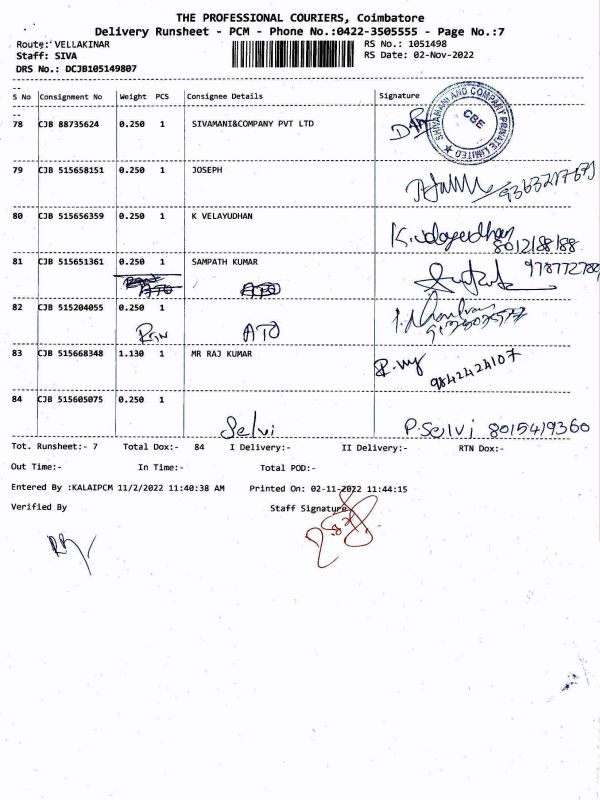 THE PROFESSIONAL COURIERS, Coimbatore
Delivery Runsheet - PCM - Phone No.:0422-3505555 - Page No.:7
Route: VELLAKINAR RS No.: 1051498
Staff: SIVA RS Date: 02-Nov-2022
DRS No.: DCJB105149807
S No Consignment No Weight PCS Consignee Details Signature
78 CJB 88735624 0.250 1 SIVAMANI&COMPANY PVT LTD
SHIVAMANI AND COMPANY PRIVATE LIMITED
CBE
79 CJB 515658151 0.250 1 JOSEPH
80 CJB 515656359 0.250 1 K VELAYUDHAN
K. 
8012188188
81 CJB 515651361 0.250 1 SAMPATH KUMAR
82 CJB 515204055 0.250 1
ATO
83 CJB 515668348 1.130 1 MR RAJ KUMAR
9842424107
84 CJB 515605075 0.250 1
Selvi P. Selvi 8015419360
Tot. Runsheet:- 7 Total Dox:- 84 I Delivery:- II Delivery:- RTN Dox:-
Out Time:- In Time:- Total POD:-
Entered By :KALAIPCM 11/2/2022 11:40:38 AM Printed On: 02-11-2022 11:44:15
Verified By Staff Signature